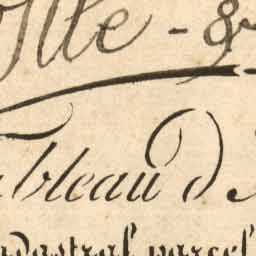 Ille - &
Tableau D'
cadastral parcel